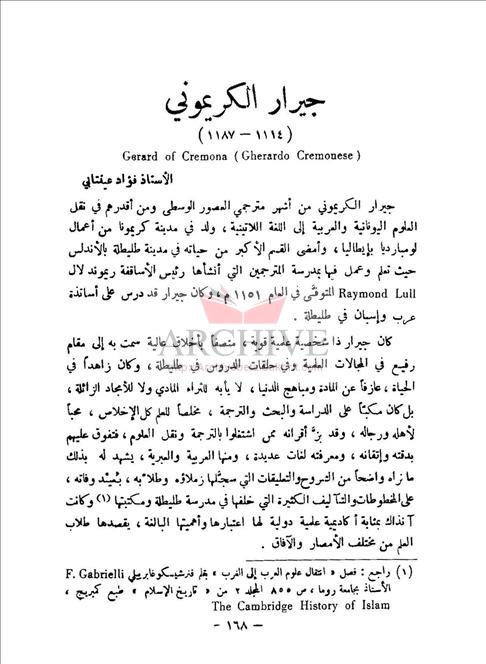 جيرار الكريموني
( ١١١٤ – ١١٨٧ )
Gerard of Cremona ( Gherardo Cremonese )
الأستاذ فؤاد عينتابي
جيرار الكريموني من أشهر مترجمي العصور الوسطى ومن أقدرهم في نقل
العلوم اليونانية والعربية إلى اللغة اللاتينية ، ولد في مدينة كريمونا من أعمال
لومبارديا بإيطاليا ، وأمضى القسم الأكبر من حياته في مدينة طليطلة بالأندلس
حيث تعلم وعمل فيها بمدرسة المترجمين التي أنشأها رئيس الأساقفة ريموند لال
Raymond Lull المتوفّى في العام ١١٥١ م ، وكان جيرار قد درس على أساتذة
عرب وإسبان في طليطلة .
ARCHIVE
كان جيرار ذا شخصية علمية قوية ، متصفاً بأخلاق عالية سمت به إلى مقام
رفيع في المجالات العلمية وفي حلقات الدروس في طليطلة ، وكان زاهداً في
الحياة ، عازفاً عن المادة ومباهج الدنيا ، لا يأبه للثراء المادي ولا للأمجاد الزائلة ،
بل كان مكبّاً على الدراسة والبحث والترجمة ، مخلصاً للعلم كل الإخلاص ، محباً
لأهله ورجاله ، وقد بزّ أقرانه ممن اشتغلوا بالترجمة ونقل العلوم ، فتفوق عليهم
بدقته وإتقانه ، ومعرفته لغات عديدة ، ومنها العربية والعبرية ، يشهد له بذلك
ما نراه واضحاً من الشروح والتعليقات التي سجّلها زملاؤه وطلابه ، بُعيد وفاته ،
على المخطوطات والتآليف الكثيرة التي خلفها في مدرسة طليطلة ومكتبتها (١) وكانت
آنذاك بمثابة أكاديمية علمية دولية لها اعتبارها وأهميتها البالغة ، يقصدها طلاب
العلم من مختلف الأمصار والآفاق .
(١) راجع : فصل « انتقال علوم العرب إلى الغرب » بقلم فنرشيسكو غابرييلي F. Gabrielli
الأستاذ بجامعة روما ، ص ٨٥٥ المجلد ٢ من « تاريخ الإسلام » طبع كمبريج ،
The Cambridge History of Islam
– ١٦٨ –